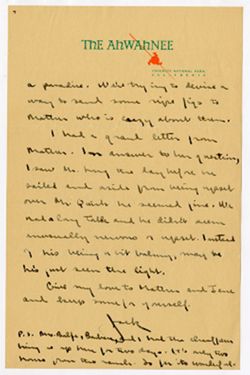 THE AHWAHNEE
YOSEMITE NATIONAL PARK
CALIFORNIA
a paradise. We're trying to devise a
way to send some ripe figs to
Mattress who is crazy about them.
I had a grand letter from
Mattress. In answer to her questions,
I saw Mr. the day before he
sailed and aside from being upset
over Mr. he seemed fine. We
had a long talk and he didn't seem
unusually nervous or upset. Instead
of his being a bit balmy, maybe
his just seen the light.
Give my love to Mattress and
and keep some for yourself.
Jack
P.S. Mrs. and I had the chauffeur
bring us up here for two days. It's only two
hours from the ranch. So far it's wonderful.